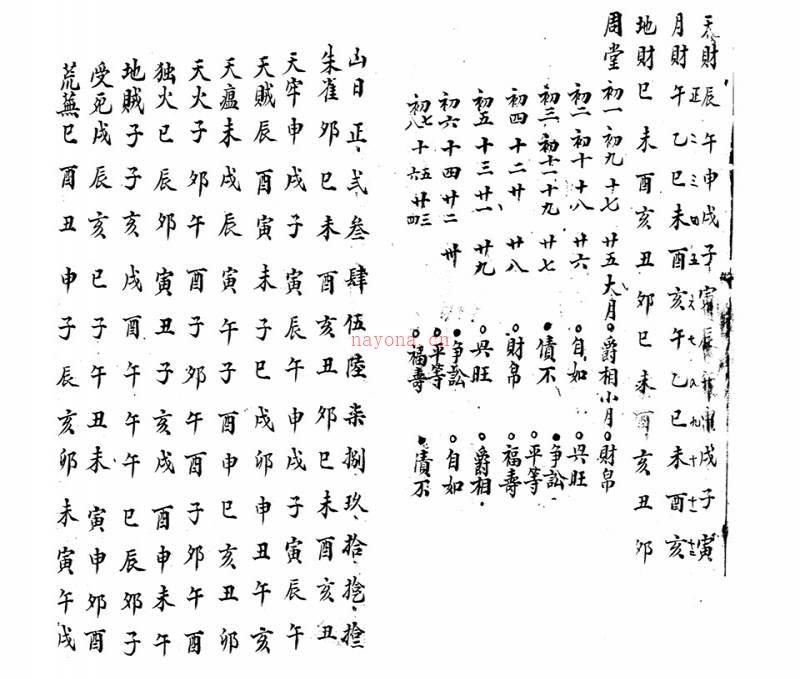 天財 辰午申戌子寅辰午申戌子寅
正二三四五六七八九十十一十二
月財 午乙巳未酉亥午乙巳未酉亥
地財 巳未酉亥丑卯巳未酉亥丑卯
周堂 初一 初九 十七 廿五 大月 爵相 小月 財帛
初二 初十 十八 廿六 自如 兴旺
初三 初十一 十九 廿七 債不 争訟
初四 十二 廿 廿八 財帛 平等
初五 十三 廿一 廿九 兴旺 福壽
初六 十四 廿二 卅 争訟 爵相
初七 十五 廿三 平等 自如
初八 十六 廿四 福壽 債不
山日 正 弍 叁 肆 伍 陸 柒 捌 玖 拾 拾一 拾二
朱雀 卯巳未酉亥丑卯巳未酉亥丑
天牢 申戌子寅辰午申戌子寅辰午
天賊 辰酉寅未子巳戌卯申丑午亥
天瘟 未戌辰寅午子酉申巳亥丑卯
天火 子卯午酉子卯午酉子卯午酉
独火 巳辰卯寅丑子亥戌酉申未午
地賊 子子亥戌酉午午午巳辰卯子
受死 戌辰亥巳子午丑未寅申卯酉
荒蕪 巳酉丑申子辰亥卯未寅午戌
nayona.cn